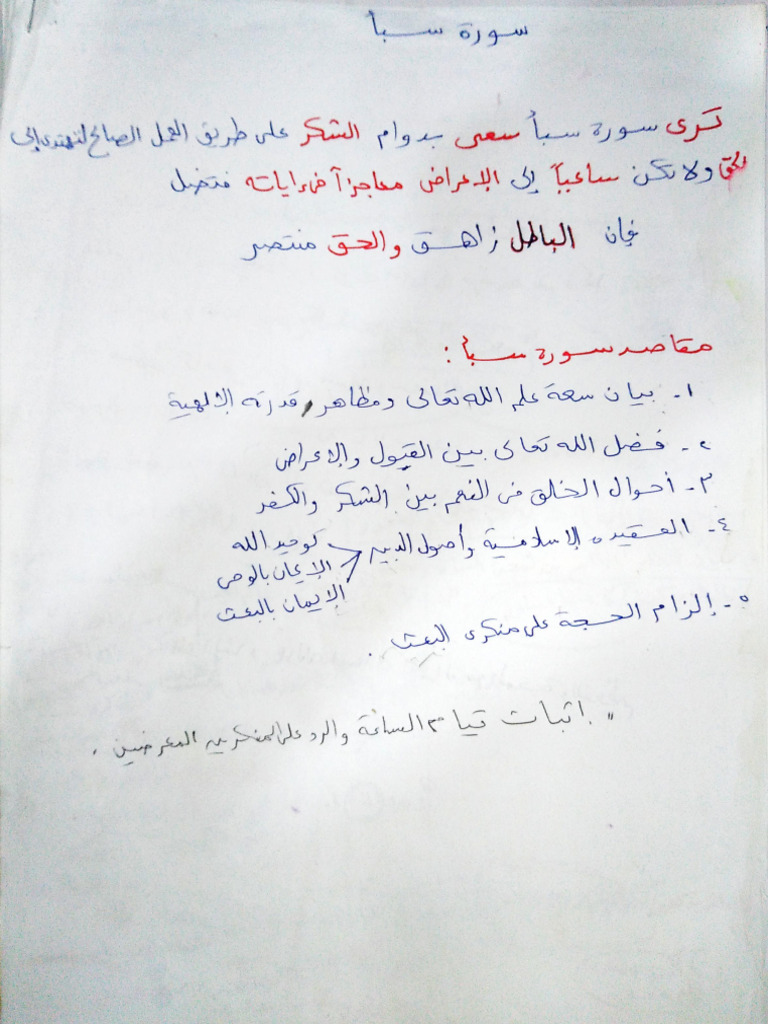 سورة سبأ
ترى سورة سبأ سعى بدوام الشكر على طريق العمل الصالح لتهتدى إلى
الحق ولا تكن ساعياً إلى الإعراض معاجزاً فى اياته فتضل
فإن الباطل زاهق والحق منتصر
مقاصد سورة سبأ :
١- بيان سعة علم الله تعالى ومظاهر قدرته الإلهية
٢- فضل الله تعالى بين القبول والإعراض
٣- أحوال الخلق فى النعم بين الشكر والكفر
٤- العقيده الإسلامية وأصول الدين توحيد الله
الإيمان بالوحى
الإيمان بالبعث
٥- إلزام الحجة على منكرى البعث .
" اثبات قيام الساعة والرد على المنكرين المعرضين .